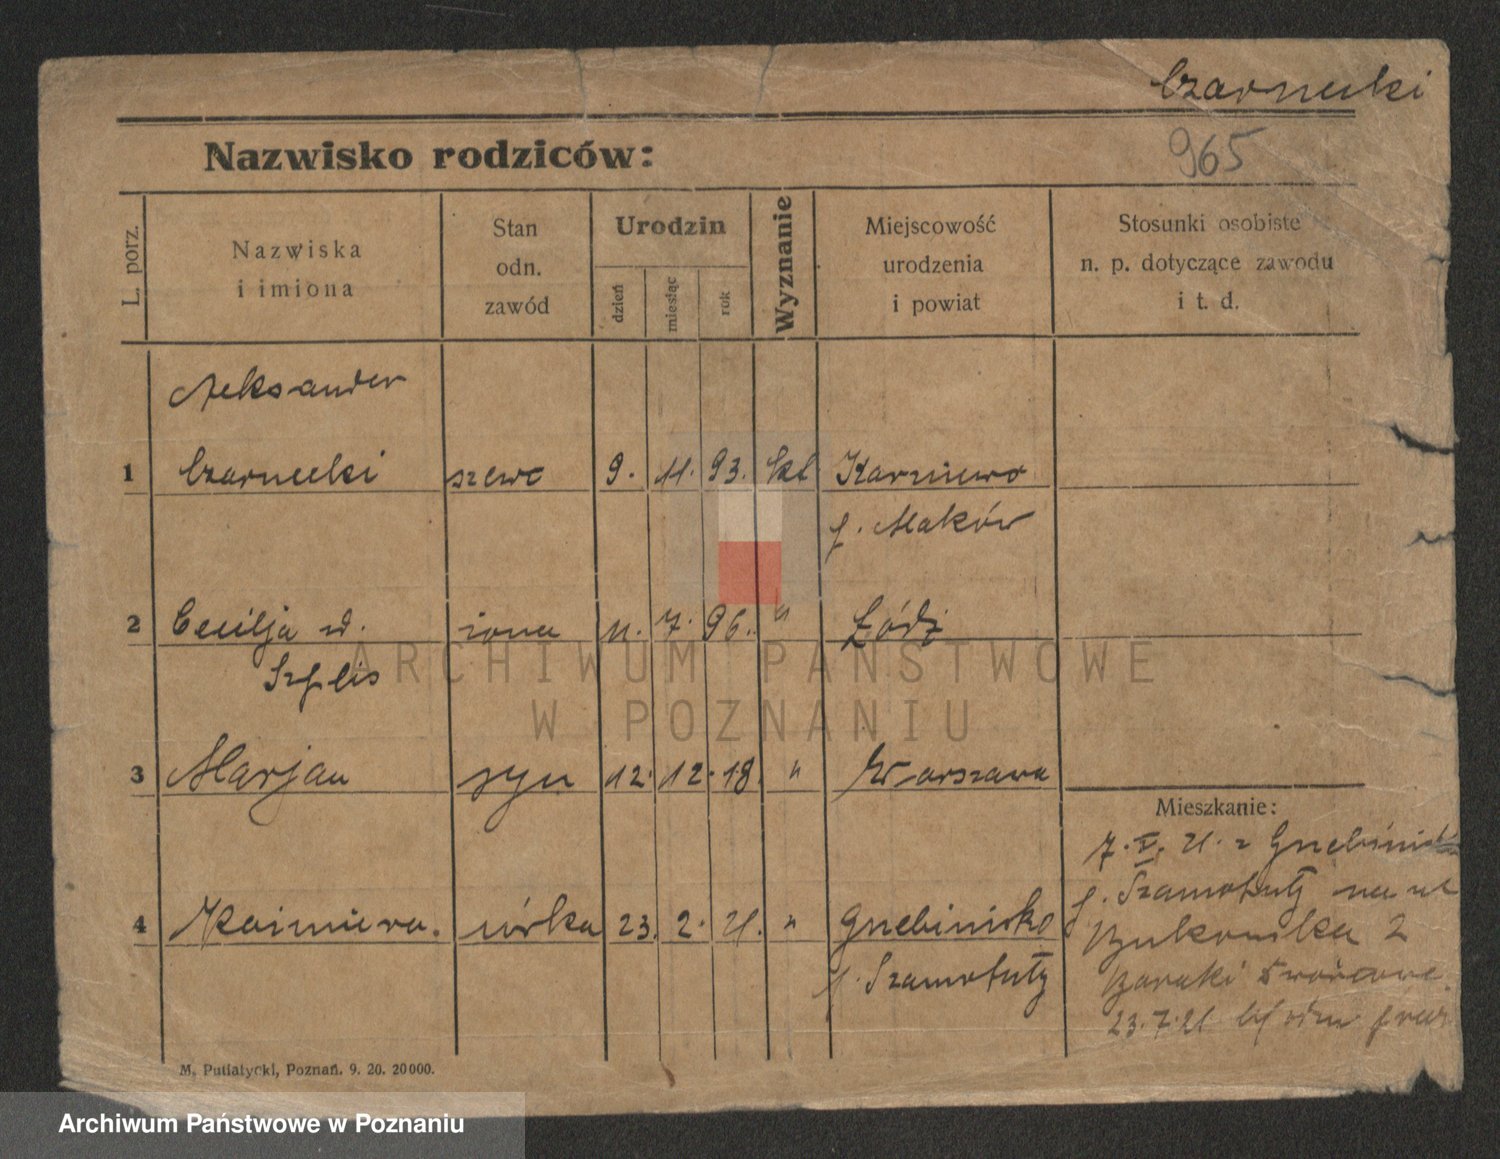 Czarnecki
965
Nazwisko rodziców:
L. porz.
Nazwiska
i imiona
Stan
odn.
zawód
Urodzin
dzień
miesiąc
rok
Wyznanie
Miejscowość
urodzenia
i powiat
Stosunki osobiste
n. p. dotyczące zawodu
i t. d.
Aleksander
1 Czarnecki szewc 9. 11. 93. kt Karniewo
p. Maków
2 Cecilja żona 11. 7. 96. " Łódź
3 Marjan syn 12. 12. 18. " Warszawa
4 Kazimiera. córka 23. 2. 21. "
p. Szamotuły
Mieszkanie:
7. V. 21. z
p. Szamotuły na ul
Bukowska 2
Baraki
23.7.21
M. Putiatycki, Poznań. 9. 20. 20000.
ARCHIWUM PAŃSTWOWE
W POZNANIU
Archiwum Państwowe w Poznaniu